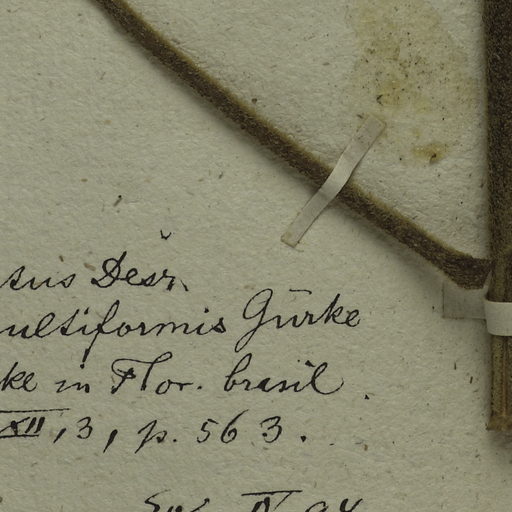 tus Desr.
ultiformis Gürke
ke in Flor. brasil.
XII, 3, p. 563.
IV 94